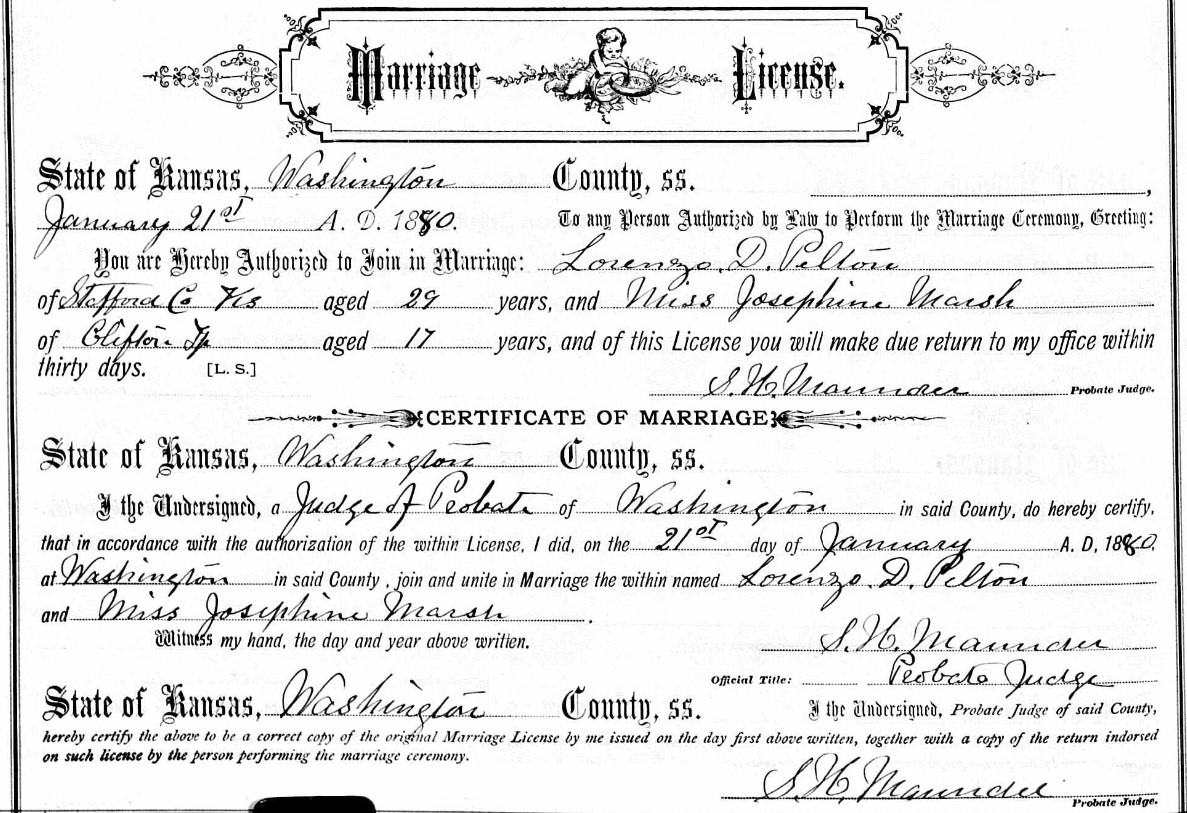 Marriage License.
State of Kansas, Washington County, ss.
January 21st A. D. 1880. To any Person Authorized by Law to Perform the Marriage Ceremony, Greeting:
You are Hereby Authorized to Join in Marriage: Lorenzo. D. Pelton
of Stafford Co Ks aged 29 years, and Miss Josephine Marsh
of Clifton Tp aged 17 years, and of this License you will make due return to my office within
thirty days. [L. S.]
S. H. Maunder Probate Judge.
CERTIFICATE OF MARRIAGE
State of Kansas, Washington County, ss.
I the Undersigned, a Judge of Probate of Washington in said County, do hereby certify,
that in accordance with the authorization of the within License, I did, on the 21st day of January A. D, 1880.
at Washington in said County, join and unite in Marriage the within named Lorenzo. D. Pelton
and Miss Josephine Marsh.
Witness my hand, the day and year above written. S. H. Maunder
Official Title: Probate Judge
State of Kansas, Washington County, ss. I the Undersigned, Probate Judge of said County,
hereby certify the above to be a correct copy of the original Marriage License by me issued on the day first above written, together with a copy of the return indorsed
on such license by the person performing the marriage ceremony.
S. H. Maunder
Probate Judge.